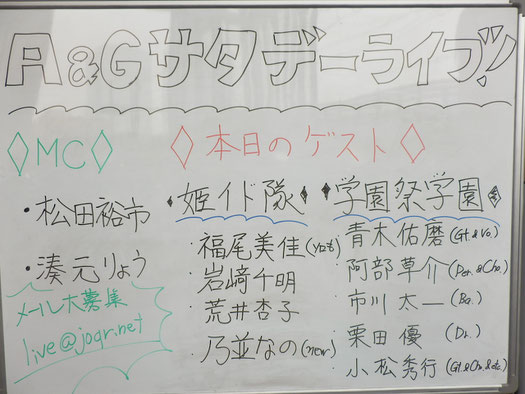 A&Gサタデーライブ!
◇MC◇
・松田裕市
・湊元りょう
メール大募集
live@joqr.net
◇本日のゲスト◇
♦姫イド隊♦
・福尾美佳(ソロも)
・岩﨑千明
・荒井杏子
・乃並なの(new)
♦学園祭学園♦
青木佑磨(Gt.&Vo.)
阿部草介(Per.&Cho.)
市川太一(Ba.)
栗田優(Dr.)
小松秀行(Gt.&Cho.&etc.)